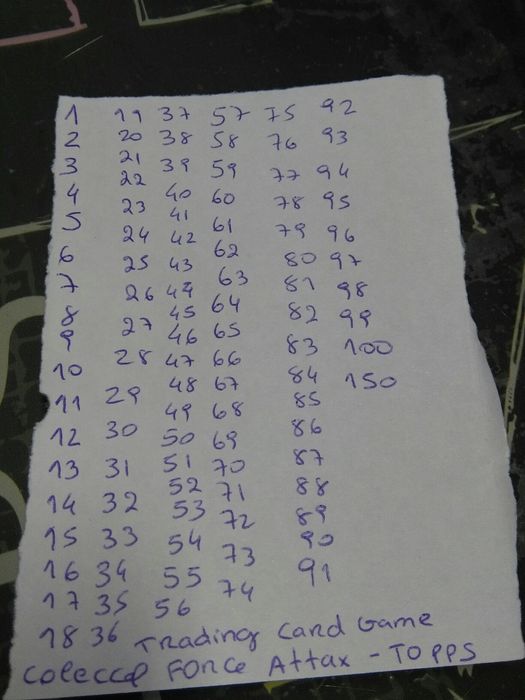 1
2
3
4
5
6
7
8
9
10
11
12
13
14
15
16
17
18
19
20
21
22
23
24
25
26
27
28
29
30
31
32
33
34
35
36
37
38
39
40
41
42
43
44
45
46
47
48
49
50
51
52
53
54
55
56
57
58
59
60
61
62
63
64
65
66
67
68
69
70
71
72
73
74
75
76
77
78
79
80
81
82
83
84
85
86
87
88
89
90
91
92
93
94
95
96
97
98
99
100
150
Trading Card Game
Force Attax - TOPPS